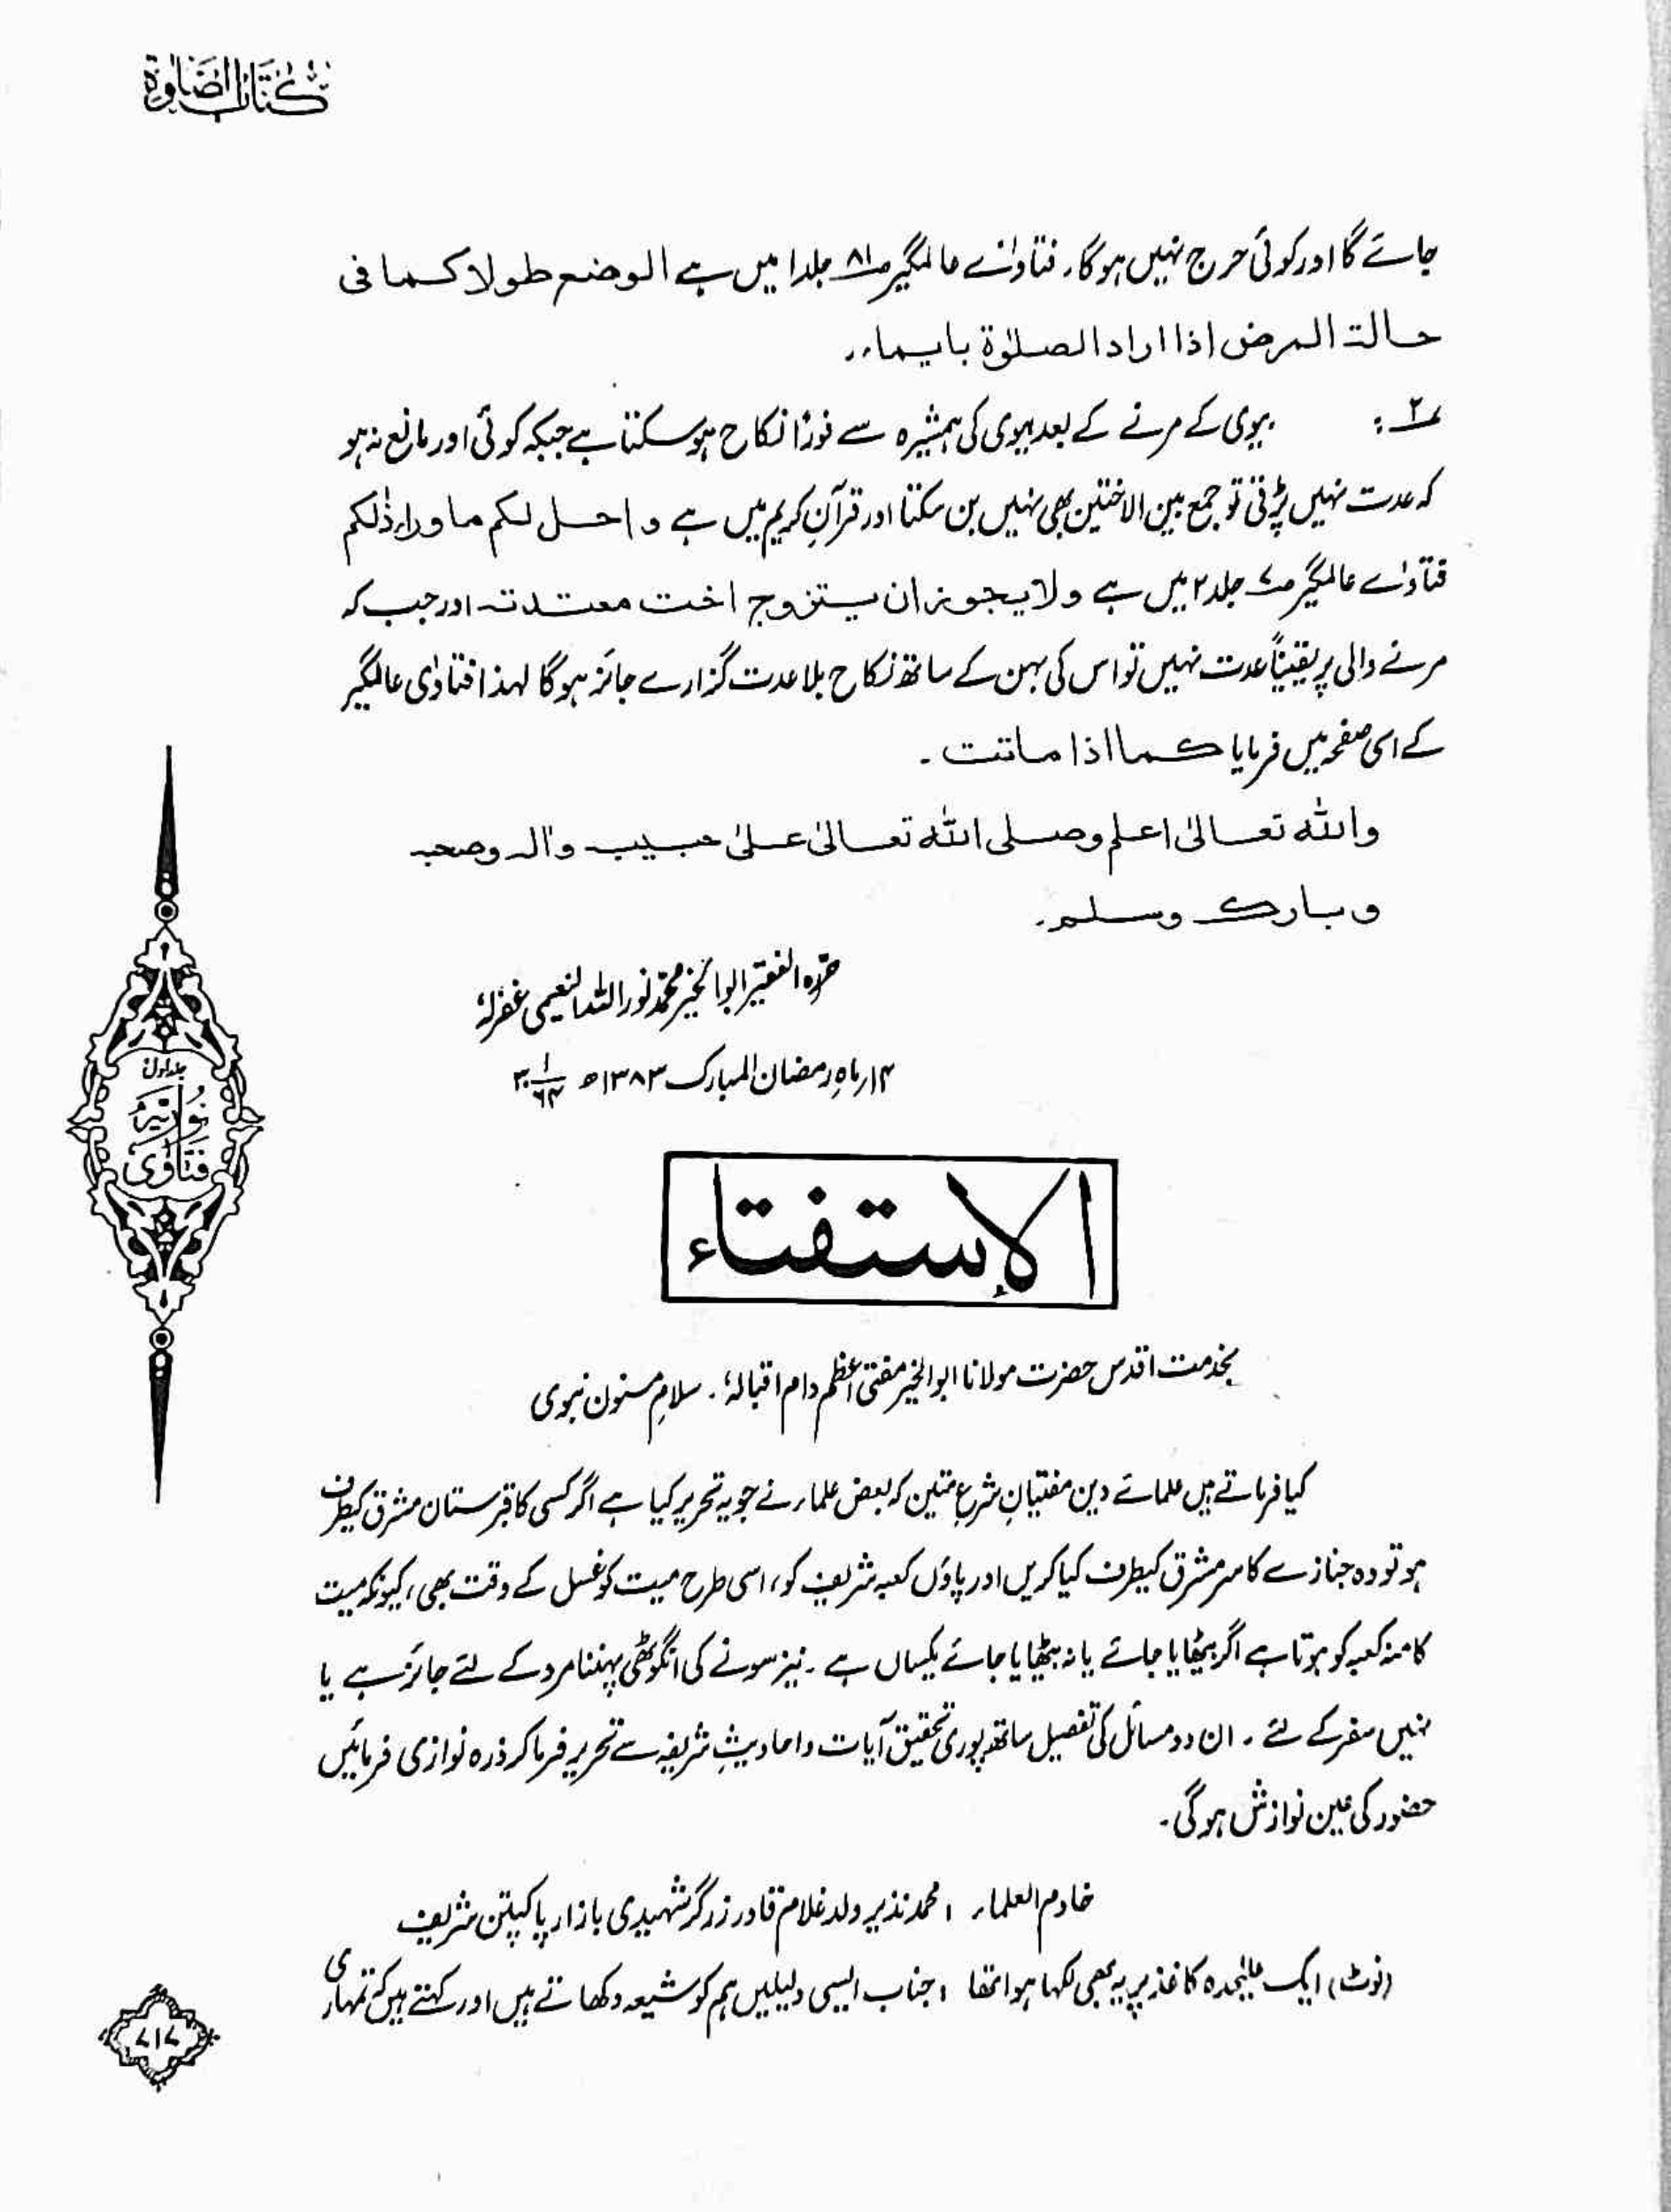 كتاب الصلوة
جائے گا اور کوئی حرج نہیں ہوگا۔ فتاوائے عالمگیر صـ۸۱ جلد ا میں ہے الوضع طولا كما فی
حالة المرض اذا اراد الصلوٰة بايماء،،
۲ـ : بیوی کے مرنے کے بعد بیوی کی ہمشیرہ سے فورًا نکاح ہوسکتا ہے جبکہ کوئی اور مانع نہ ہو
کہ عدت نہیں پڑتی تو جمع بین الاختین بھی نہیں بن سکتا اور قرآنِ کریم میں ہے و احل لكم ما وراء ذٰلكم
فتاوٰے عالمگیر صـ۷ جلد ۲ میں ہے ولا يجوز ان يتزوج اخت معتدته اور جب کہ
مرنے والی پر یقیناً عدت نہیں تو اس کی بہن کے ساتھ نکاح بلا عدت گزارے جائز ہوگا لہذا فتاوٰی عالمگیر
کے اسی صفحہ میں فرمایا كما اذا ماتت ۔
والله تعالىٰ اعلم وصلى الله تعالىٰ علىٰ حبيبه واٰله وصحبه
وبارك وسلم۔
حررہ الفقیر ابوالخیر محمد نور اللہ النعیمی غفرلہٗ
۱۴؍ماہِ رمضان المبارک ۱۳۸۳ھ ۳۰/۱/۶۴
جلد اول
فتاوٰی نوریہ
الإستفتاء
بخدمت اقدس حضرت مولانا ابوالخیر مفتی اعظم دام اقبالہٗ ۔ سلامِ مسنون نبوی
کیا فرماتے ہیں علمائے دین مفتیانِ شرعِ متین کہ بعض علماء نے جو یہ تحریر کیا ہے اگر کسی کا قبرستان مشرق کیطرف
ہو تو وہ جنازے کا سر مشرق کیطرف کیا کریں اور پاؤں کعبہ شریف کو، اسی طرح میت کو غسل کے وقت بھی، کیونکہ میت
کا منہ کعبہ کو ہوتا ہے اگر بٹھایا جائے یا نہ بٹھایا جائے یکساں ہے ۔ نیز سونے کی انگوٹھی پہننا مرد کے لئے جائز ہے یا
نہیں سفر کے لئے ۔ ان دو مسائل کی تفصیل ساتھ پوری تحقیق آیات و احادیثِ شریفہ سے تحریر فرما کر ذرہ نوازی فرمائیں
حضور کی عین نوازش ہوگی۔
خادم العلماء ، محمد نذیر ولد غلام قادر زرگر شہیدی بازار پاکپتن شریف
(نوٹ) ایک علیٰحدہ کاغذ پر یہ بھی لکھا ہوا تھا ، جناب ایسی دلیلیں ہم کو شیعہ دکھاتے ہیں اور کہتے ہیں کہ تمہاری
۷۱۷